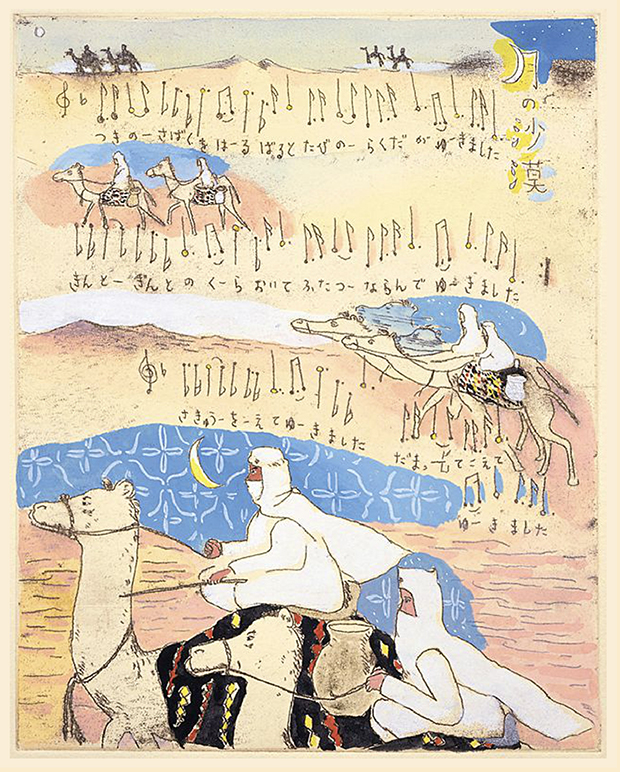 月の沙漠
つきのーさばくを はーる ばると たびのー らくだ が ゆーきました
きんとー ぎんとの くーら おいて ふたつー ならんで ゆーきました
さきゅうーをこえて ゆーきました
だまってーこえて
ゆーきました